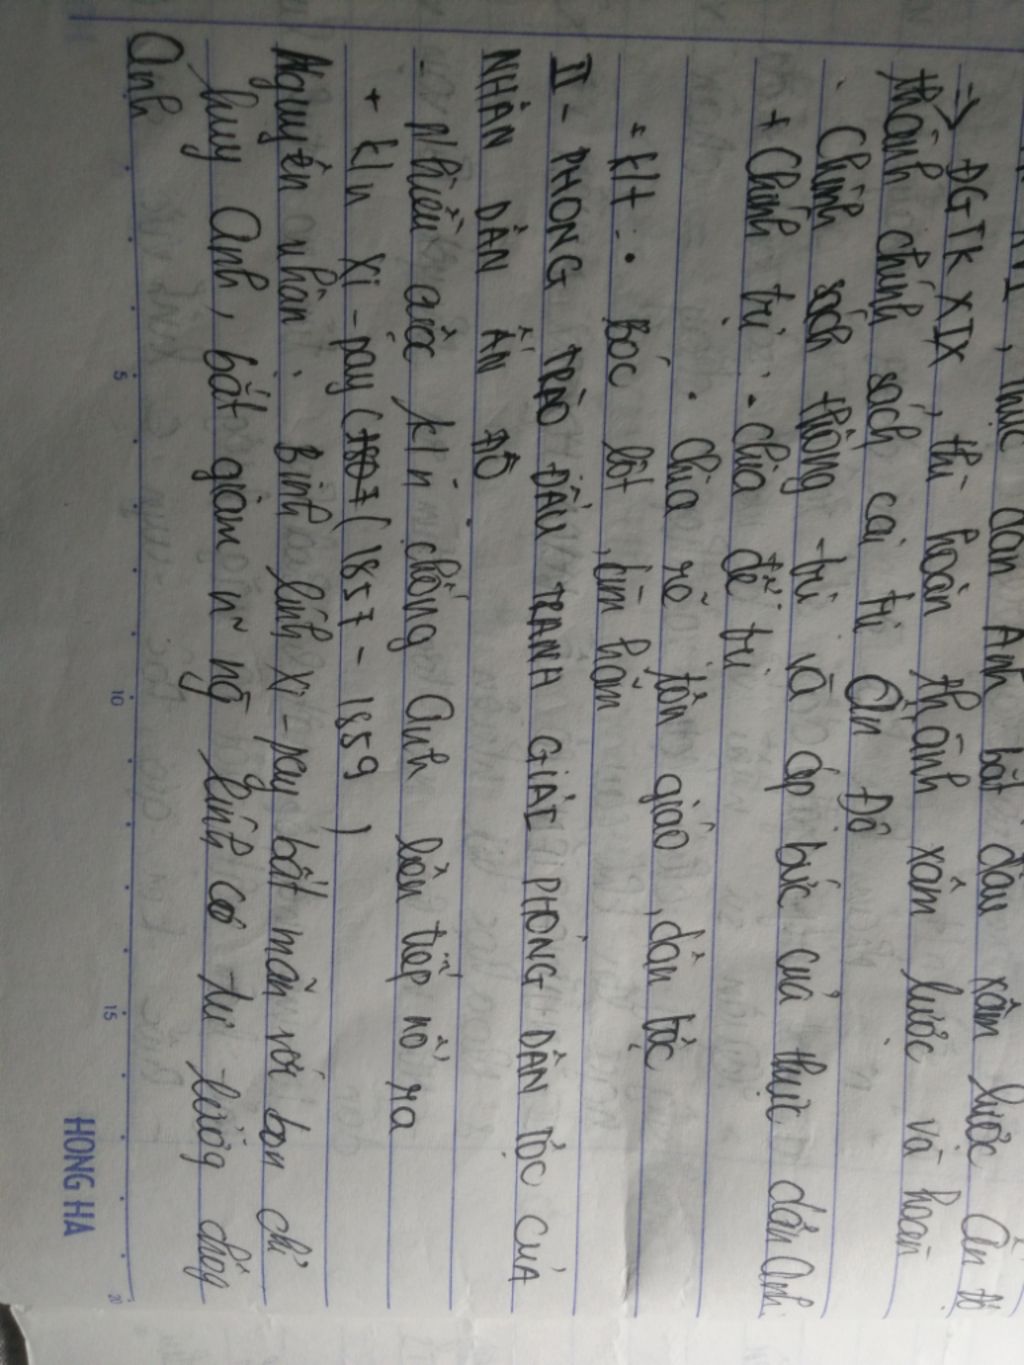 XVI, thực dân Anh bắt đầu xâm lược Ấn Độ
=> ĐGTK XIX, thì hoàn thành xâm lược và hoàn
thành chính sách cai trị Ấn Độ
. Chính sách thống trị và áp bức của thực dân Anh.
+ Chính trị: . chia để trị
. chia rẽ tôn giáo, dân tộc
+ k/t: . Bóc lột, cùm hãm
II - PHONG TRÀO ĐẤU TRANH GIẢI PHÓNG DÂN TỘC CỦA
NHÂN DÂN ẤN ĐỘ
- Nhiều cuộc k/n chống Anh liên tiếp nổ ra
+ k/n xi-pay (1857 - 1859)
Nguyên nhân: Binh lính xi-pay bất mãn với bọn chỉ
huy Anh, bắt giam n~ ng lính có tư tưởng chống
Anh
5
10
15
20
HONG HA